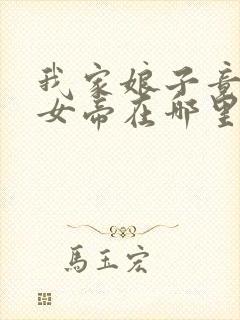 我家娘子竟
女帝在哪里
馬玉宏